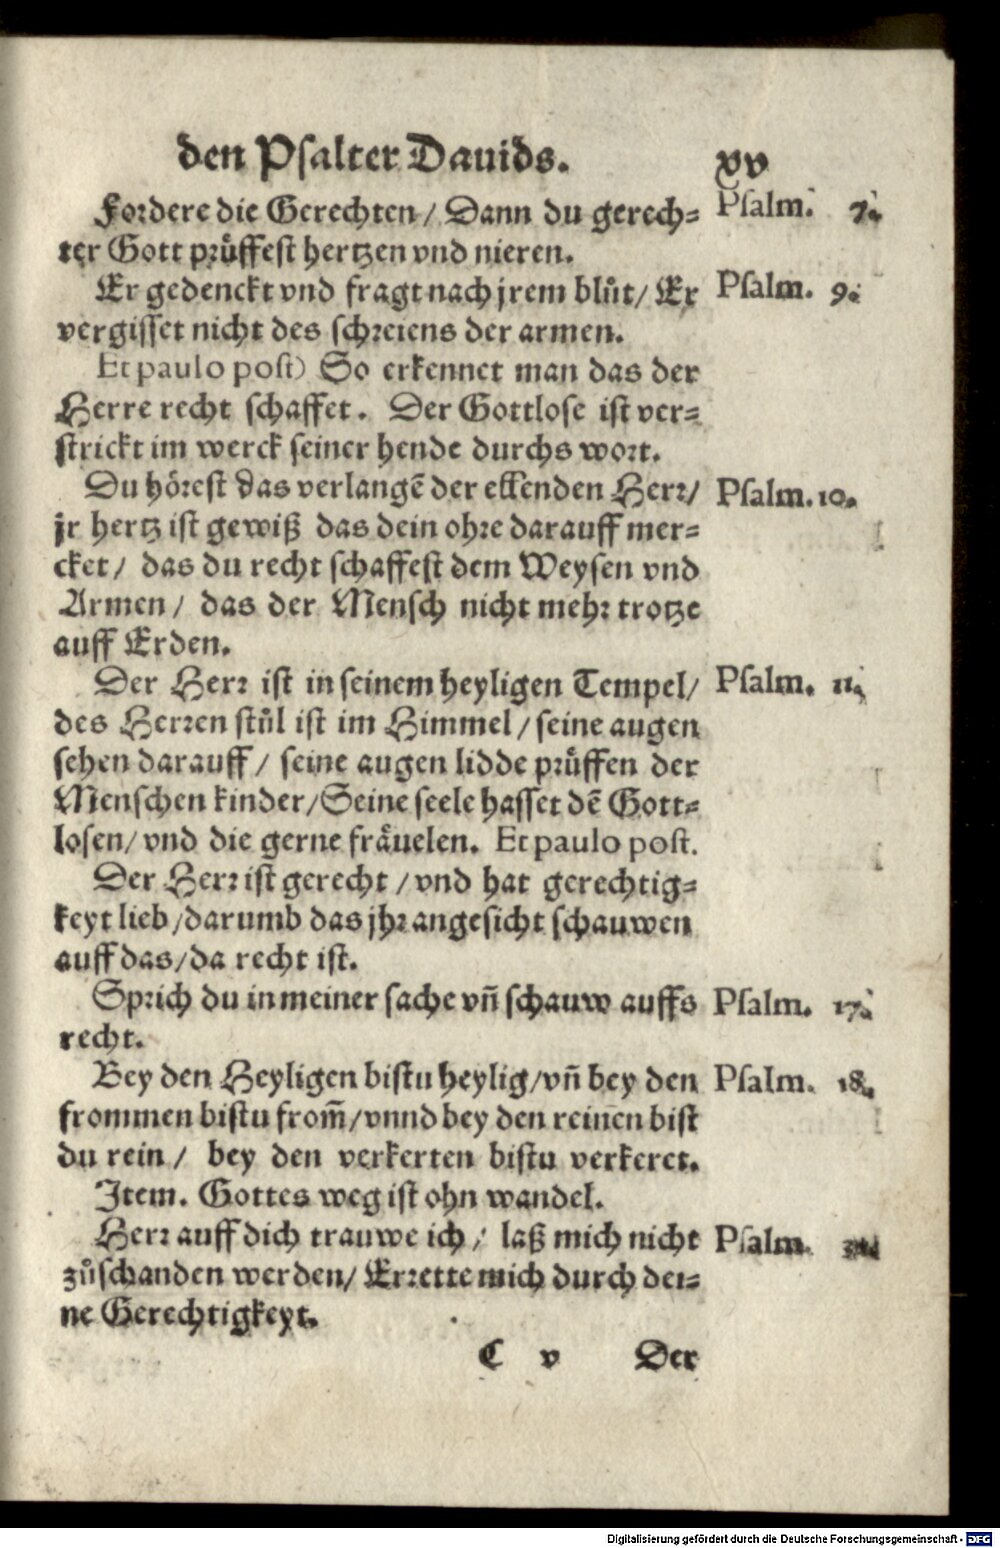 den Psalter Dauids. xv
Fordere die Gerechten / Dann du gerech⸗ Psalm. 7.
ter Gott pruͤffest hertzen vnd nieren.
Er gedenckt vnd fragt nach jrem bluͦt / Er Psalm. 9.
vergisset nicht des schreiens der armen.
Et paulo post) So erkennet man das der
Herre recht schaffet. Der Gottlose ist ver⸗
strickt im werck seiner hende durchs wort.
Du hoͤrest das verlangē der ellenden Herr / Psalm. 10.
jr hertz ist gewiß das dein ohre darauff mer⸗
cket / das du recht schaffest dem Weysen vnd
Armen / das der Mensch nicht mehr trotze
auff Erden.
Der Herr ist in seinem heyligen Tempel / Psalm. 11.
des Herren stuͦl ist im Himmel / seine augen
sehen darauff / seine augen lidde pruͤffen der
Menschen kinder / Seine seele hasset dē Gott⸗
losen / vnd die gerne fraͤuelen. Et paulo post.
Der Herr ist gerecht / vnd hat gerechtig⸗
keyt lieb / darumb das jhr angesicht schauwen
auff das / da recht ist.
Sprich du in meiner sache vñ schauw auffs Psalm. 17.
recht.
Bey den Heyligen bistu heylig / vñ bey den Psalm. 18.
frommen bistu from̃ / vnnd bey den reinen bist
du rein / bey den verkerten bistu verkeret.
Item. Gottes weg ist ohn wandel.
Herr auff dich trauwe ich / laß mich nicht Psalm.
zuͦschanden werden / Errette mich durch dei⸗
ne Gerechtigkeyt.
C v Der
Digitalisierung gefördert durch die Deutsche Forschungsgemeinschaft - DFG